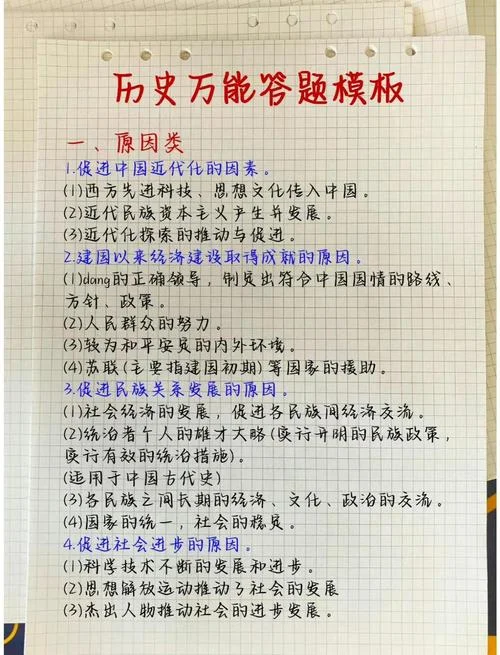 历史万能答题模板
一、原因类
1.促进中国近代化的因素。
(1)西方先进科技、思想文化传入中国。
(2)近代民族资本主义产生并发展。
(3)近代化探索的推动与促进。
2.建国以来经济建设取得成就的原因。
(1)dang的正确领导，制定出符合中国国情的路线、
方针、政策。
(2)人民群众的努力。
(3)较为和平安定的内外环境。
(4)苏联(主要指建国初期)等国家的援助。
3.促进民族关系发展的原因。
(1)社会经济的发展，促进各民族间经济交流。
(2)统治者个人的雄才大略(实行开明的民族政策，
实行有效的统治措施)。
(适用于中国古代史)
(3)各民族之间长期的经济、文化、政治的交流。
(4)国家的统一，社会的稳定。
4.促进社会进步的原因。
(1)科学技术不断的发展和进步。
(2)思想解放运动推动了社会的发展
(3)杰出人物推动社会的进步发展。